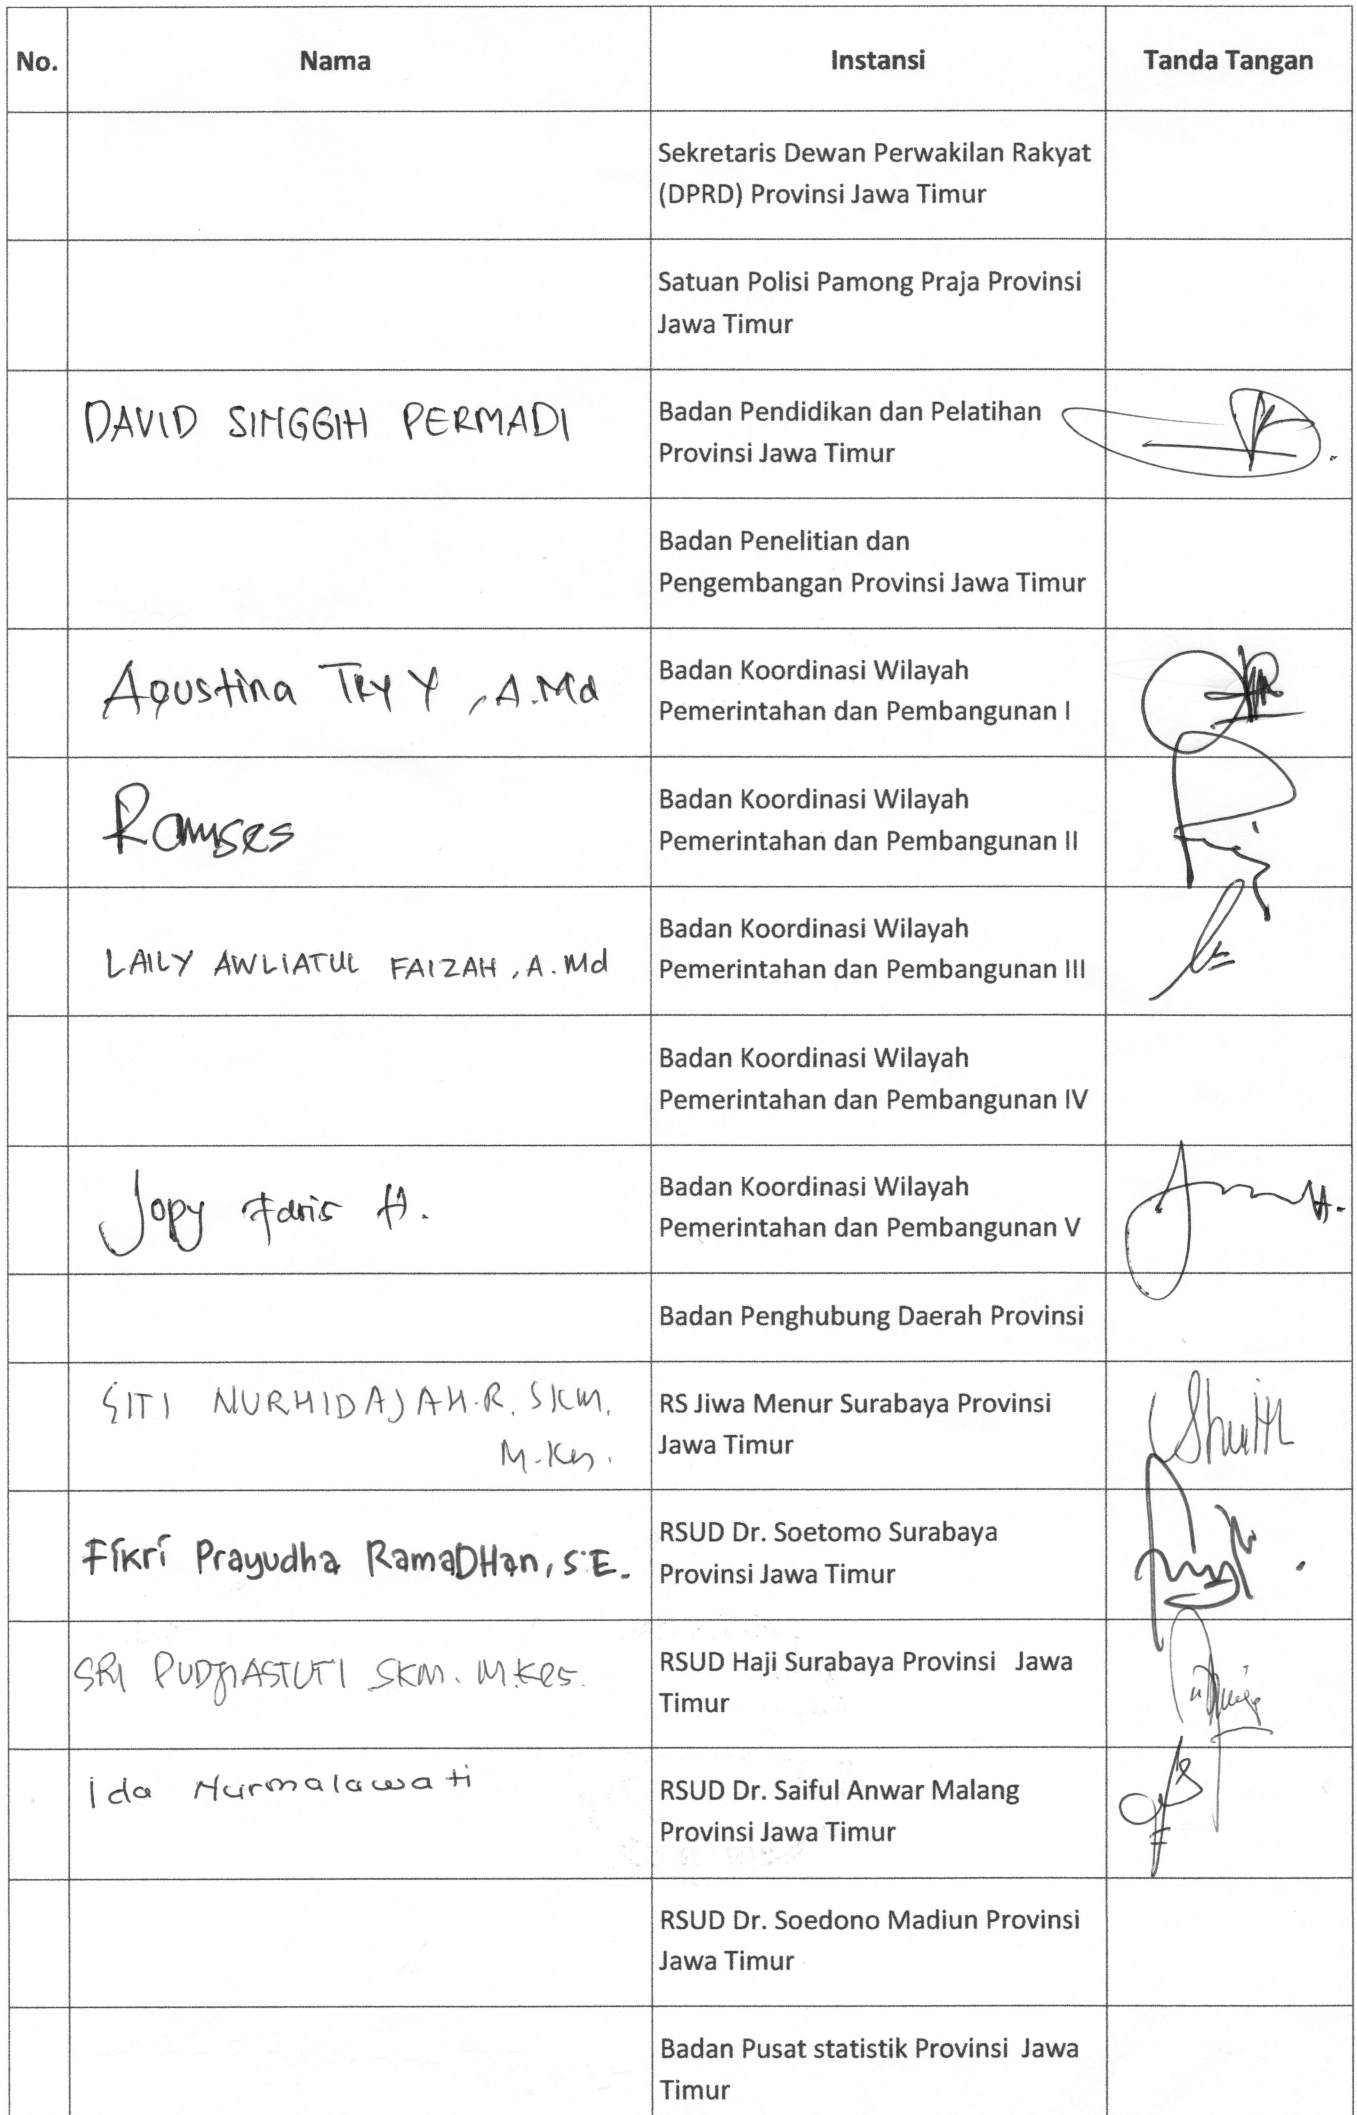 No. Nama Instansi Tanda Tangan
Sekretaris Dewan Perwakilan Rakyat
(DPRD) Provinsi Jawa Timur
Satuan Polisi Pamong Praja Provinsi
Jawa Timur
DAVID SINGGIH PERMADI
Badan Pendidikan dan Pelatihan
Provinsi Jawa Timur
Badan Penelitian dan
Pengembangan Provinsi Jawa Timur
Agustina Try Y, A.Md
Badan Koordinasi Wilayah
Pemerintahan dan Pembangunan I
Ramses
Badan Koordinasi Wilayah
Pemerintahan dan Pembangunan II
LAILY AWLIATUL FAIZAH, A.Md
Badan Koordinasi Wilayah
Pemerintahan dan Pembangunan III
Badan Koordinasi Wilayah
Pemerintahan dan Pembangunan IV
Jopy Faris H.
Badan Koordinasi Wilayah
Pemerintahan dan Pembangunan V
Badan Penghubung Daerah Provinsi
SITI NURHIDAJAH.R. SKM.
M.Kes.
RS Jiwa Menur Surabaya Provinsi
Jawa Timur
Fikri Prayudha RamaDHan, S.E.
RSUD Dr. Soetomo Surabaya
Provinsi Jawa Timur
SRI PUDJIASTUTI SKM. M.Kes.
RSUD Haji Surabaya Provinsi Jawa
Timur
Ida Nurmalawati
RSUD Dr. Saiful Anwar Malang
Provinsi Jawa Timur
RSUD Dr. Soedono Madiun Provinsi
Jawa Timur
Badan Pusat statistik Provinsi Jawa
Timur